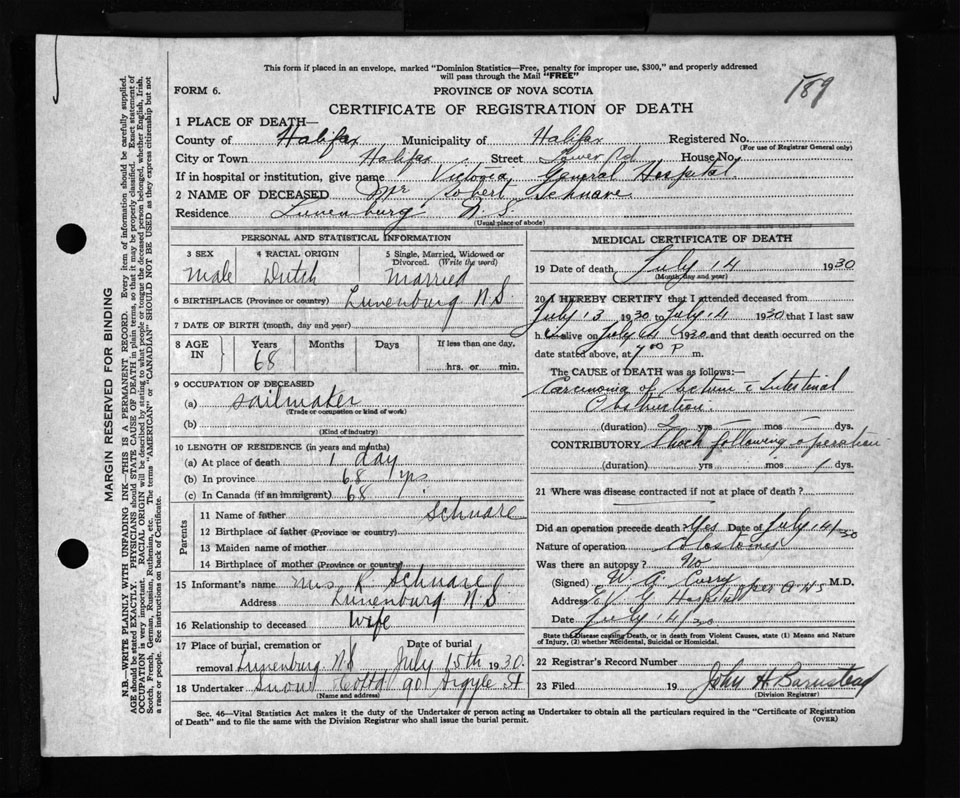 This form if placed in an envelope, marked "Dominion Statistics—Free, penalty for improper use, $300," and properly addressed
will pass through the Mail "FREE"
189
FORM 6.
PROVINCE OF NOVA SCOTIA
CERTIFICATE OF REGISTRATION OF DEATH
1 PLACE OF DEATH—
County of Halifax Municipality of Halifax Registered No.
(For use of Registrar General only)
City or Town Halifax Street Tower Rd House No.
If in hospital or institution, give name Victoria General Hospital
2 NAME OF DECEASED Mr Robert Schnare
Residence Lunenburg N.S.
(Usual place of abode)
PERSONAL AND STATISTICAL INFORMATION
3 SEX 4 RACIAL ORIGIN 5 Single, Married, Widowed or
Divorced. (Write the word)
Male Dutch Married
6 BIRTHPLACE (Province or country) Lunenburg N.S.
7 DATE OF BIRTH (month, day and year)
8 AGE IN Years Months Days If less than one day.
68 hrs. or min.
9 OCCUPATION OF DECEASED
(a) Sailmaker
(Trade or occupation or kind of work)
(b)
(Kind of industry)
10 LENGTH OF RESIDENCE (in years and months)
(a) At place of death 1 day
(b) In province 68 yrs.
(c) In Canada (if an immigrant) 68
Parents
11 Name of father Schnare
12 Birthplace of father (Province or country)
13 Maiden name of mother
14 Birthplace of mother (Province or country)
15 Informant's name Mrs R Schnare
Address Lunenburg N.S.
16 Relationship to deceased Wife
17 Place of burial, cremation or Date of burial
removal Lunenburg NS July 15th 1930.
18 Undertaker Snow 90 Argyle St
(Name and address)
MEDICAL CERTIFICATE OF DEATH
19 Date of death July 14 1930
(Month, day and year)
20 I HEREBY CERTIFY that I attended deceased from
July 13 1930 to July 14 1930 that I last saw
h alive on July 14 1930 and that death occurred on
date stated above, at 7 00 P m.
The CAUSE of DEATH was as follows:—
Carcinoma of rectum c Intestinal
Obstruction.
(duration) 2 yrs — mos — dys.
CONTRIBUTORY. Shock following operation
(duration) yrs mos 1 dys.
21 Where was disease contracted if not at place of death?
Did an operation precede death? Yes Date of July 14/30
Nature of operation Colostomy
Was there an autopsy? No
(Signed) W. G. Curry M.D.
per
Address V G Hospital
Date July 14/30
State the Disease causing Death, or in death from Violent Causes, state (1) Means and Nature
of Injury, (2) whether Accidental, Suicidal or Homicidal.
22 Registrar's Record Number
23 Filed 19 John H Barnstead
(Division Registrar)
Sec. 46—Vital Statistics Act makes it the duty of the Undertaker or person acting as Undertaker to obtain all the particulars required in the "Certificate of Registration
of Death" and to file the same with the Division Registrar who shall issue the burial permit.
(OVER)
MARGIN RESERVED FOR BINDING
N.B.—WRITE PLAINLY WITH UNFADING INK—THIS IS A PERMANENT RECORD. Every item of information should be carefully supplied.
AGE should be stated EXACTLY. PHYSICIANS should STATE CAUSE OF DEATH in plain terms, so that it may be properly classified. Exact statement of
OCCUPATION is very important. RACIAL ORIGIN will be described by stating to what people or tongue the deceased person belonged, whether English, Irish,
Scotch, French, German, Russian, Ruthenian, etc. The terms "AMERICAN" or "CANADIAN" SHOULD NOT BE USED as they express citizenship but not
a race or people. See instructions on back of Certificate.